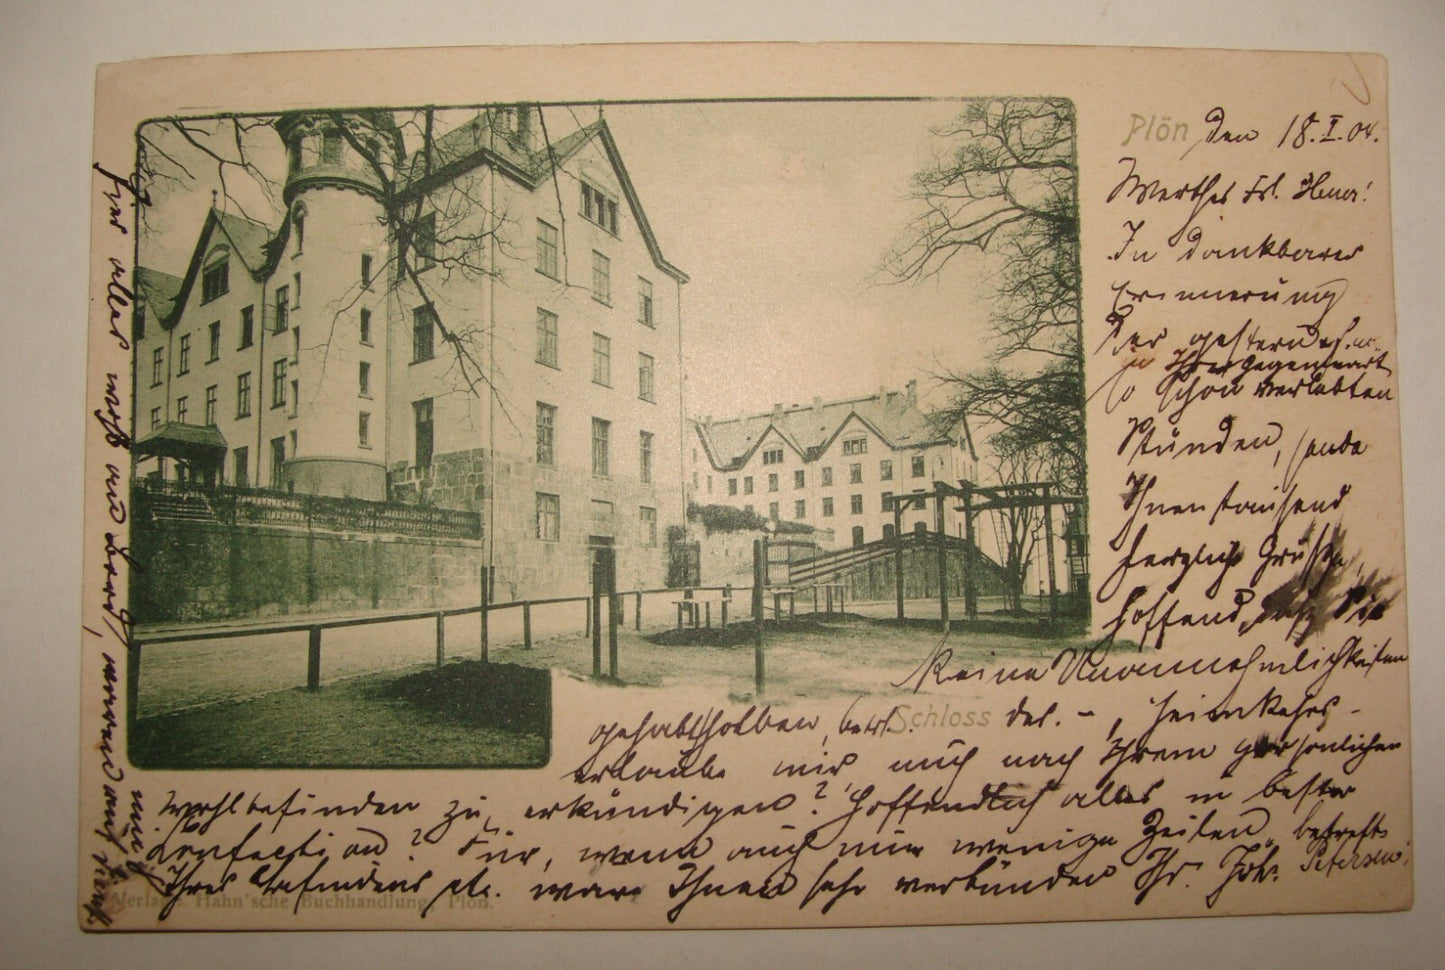 Plön den 18.I.04.
Werthes Frl.
In dankbarer
Erinnerung
der gestern
in Ihrer Gegenwart
so schön verlebten
Stunden, sende
Ihnen tausend
herzliche Grüße,
hoffend, daß Sie
keine Unannehmlichkeiten
gehabt haben, betrf. des. -, Heimkehrs -
Schloss
erlaube mir auch nach Ihrem persönlichen
Wohlbefinden zu erkündigen? Hoffendlich alles in bester
Für, wenn auch nur wenige Zeilen, betreffs
Ihres Befindens etc. wäre Ihnen sehr verbunden Ihr Joh. Petersen.
Verlag v. Hahn'sche Buchhandlung, Plön.